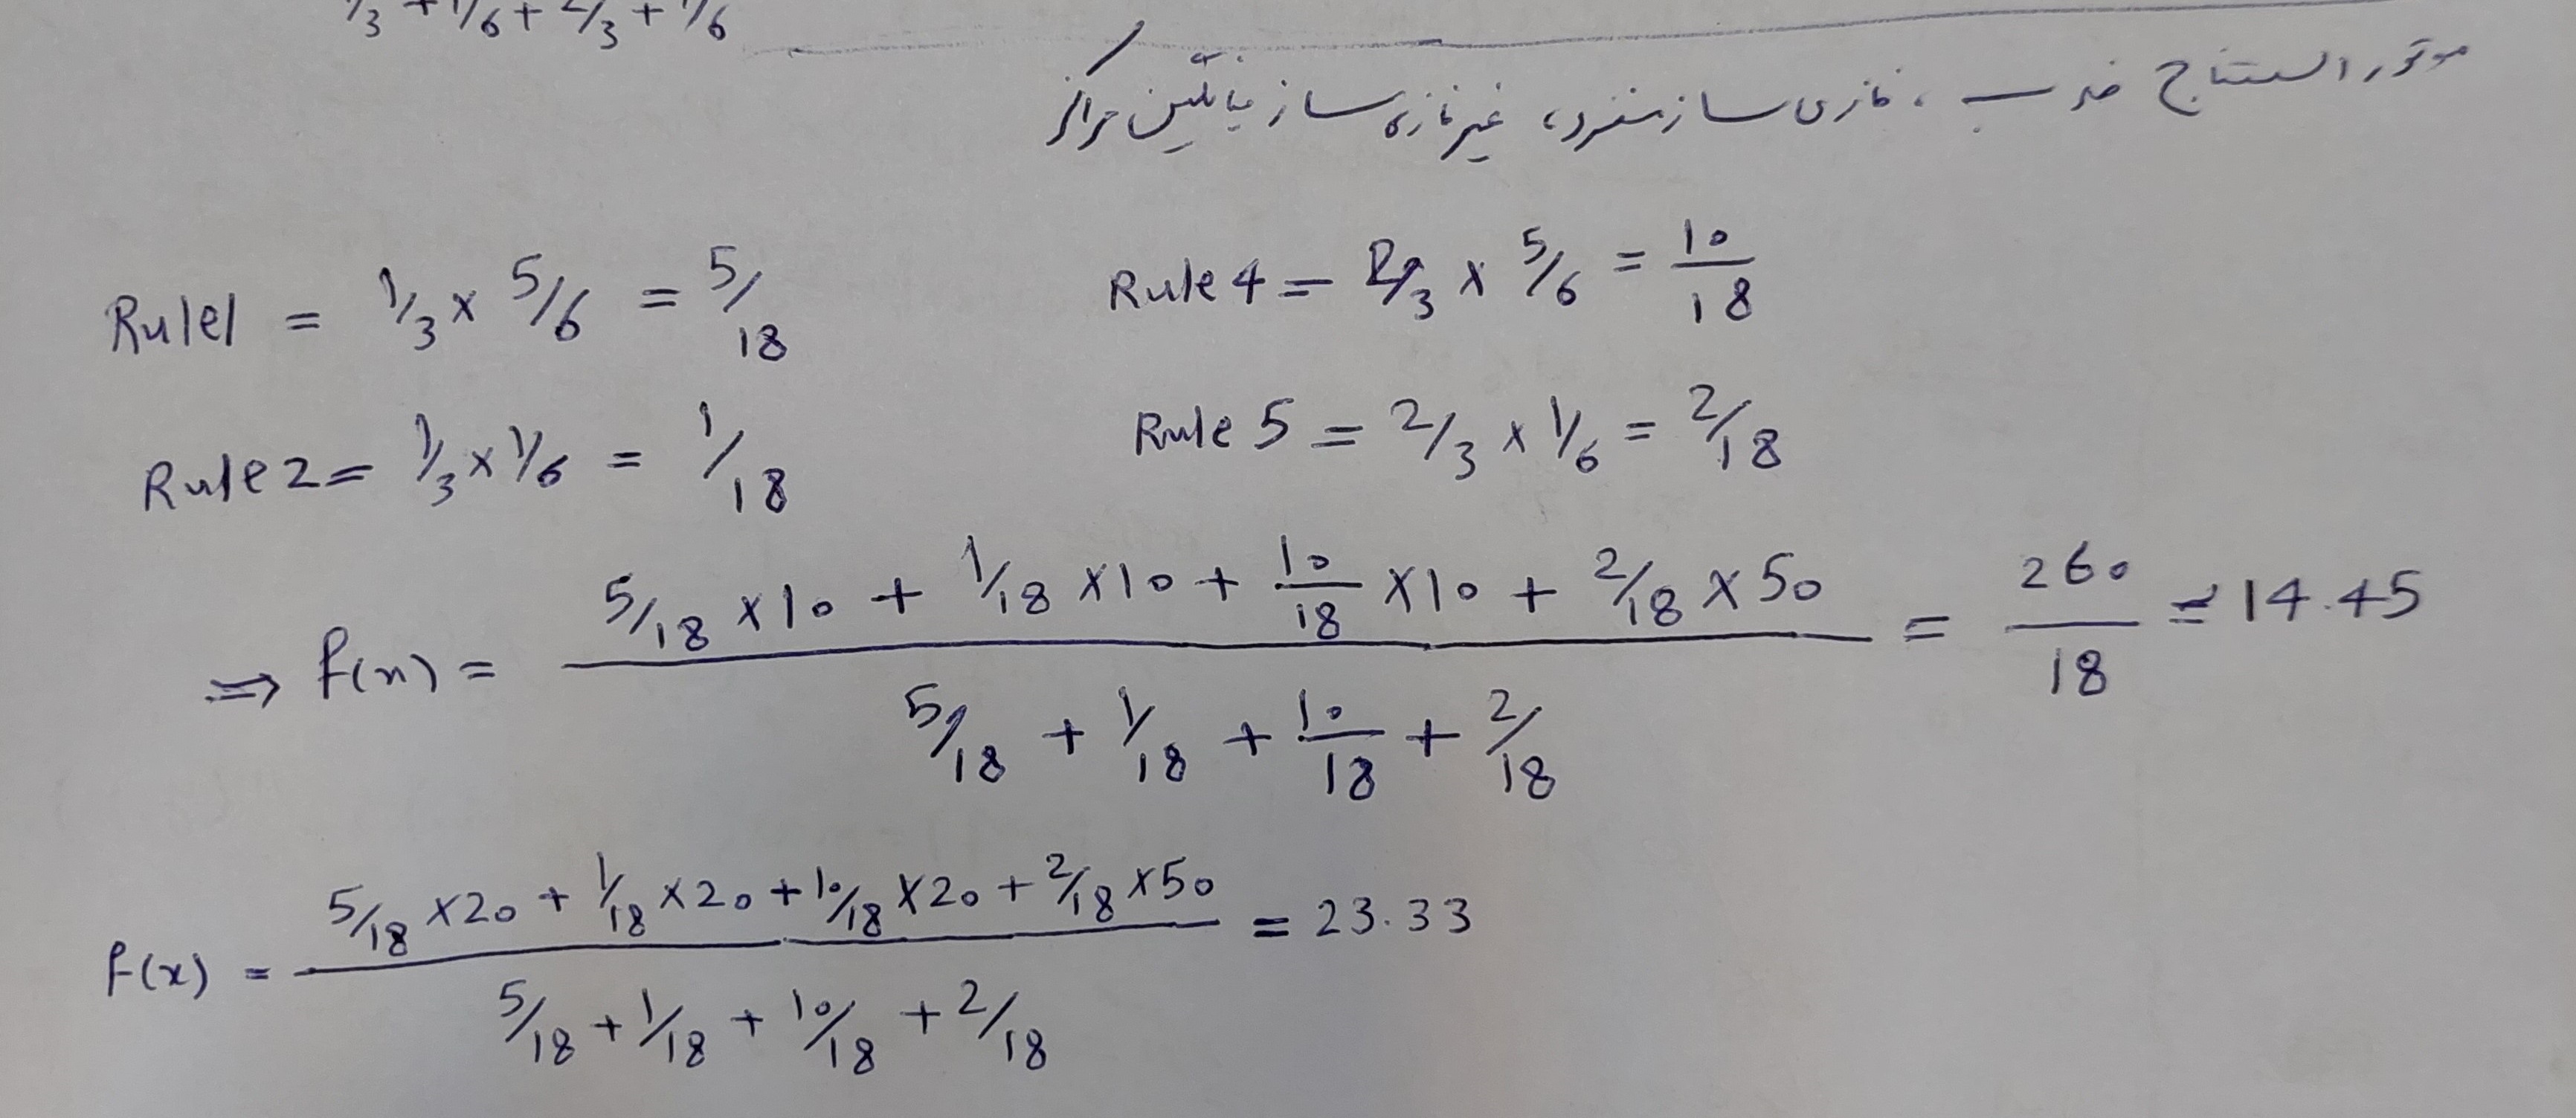 1/3 + 1/6 + 2/3 + 1/6
موتور استنتاج ضرب، فازی ساز منفرد، غیر فازی ساز میانگین مراکز
Rule1 = 1/3 × 5/6 = 5/18
Rule 4 = 2/3 × 5/6 = 10/18
Rule 2 = 1/3 × 1/6 = 1/18
Rule 5 = 2/3 × 1/6 = 2/18
⇒ f(x) = (5/18 × 10 + 1/18 × 10 + 10/18 × 10 + 2/18 × 50) / (5/18 + 1/18 + 10/18 + 2/18) = 260/18 = 14.45
f(x) = (5/18 × 20 + 1/18 × 20 + 10/18 × 20 + 2/18 × 50) / (5/18 + 1/18 + 10/18 + 2/18) = 23.33